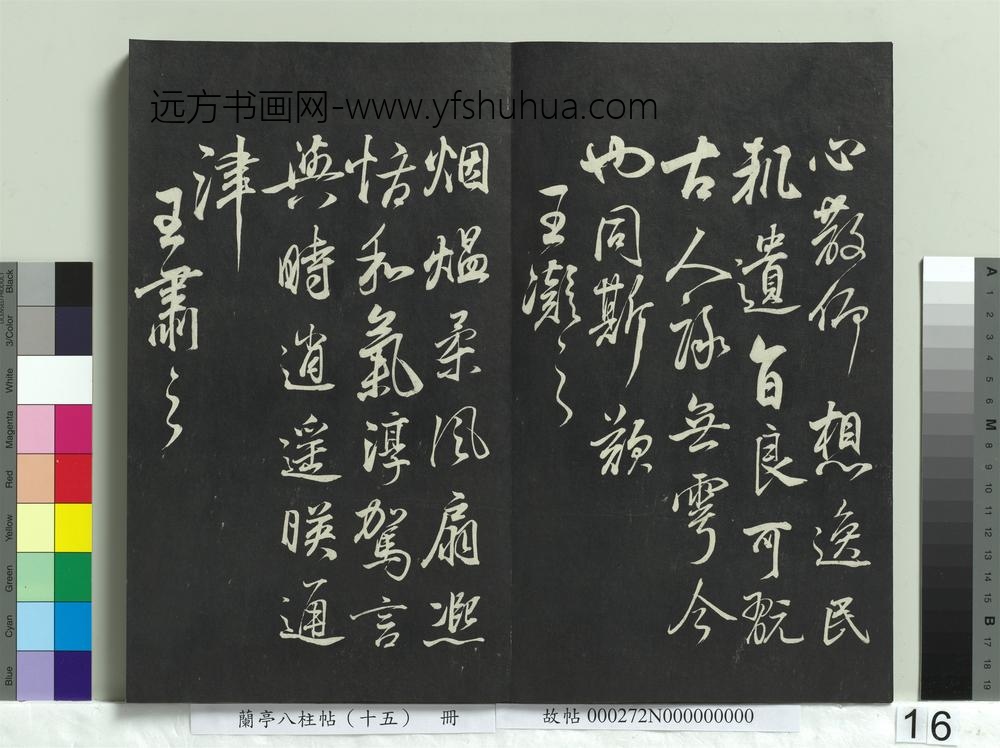 远方书画网-www.yfshuhua.com
心散仰想逸民
軌遺音良可翫
古人詠無雩今
也同斯歎
王凝之
烟熅柔風扇熈
怡和氣淳駕言
興時逍遥暎通
津
王肅之
蘭亭八柱帖（十五） 冊
故帖 000272N000000000
16
Black
3/Color
White
Magenta
Red
Yellow
Green
Cyan
Blue
A
1
2
3
4
5
6
M
8
9
10
11
12
13
14
15
B
17
18
19